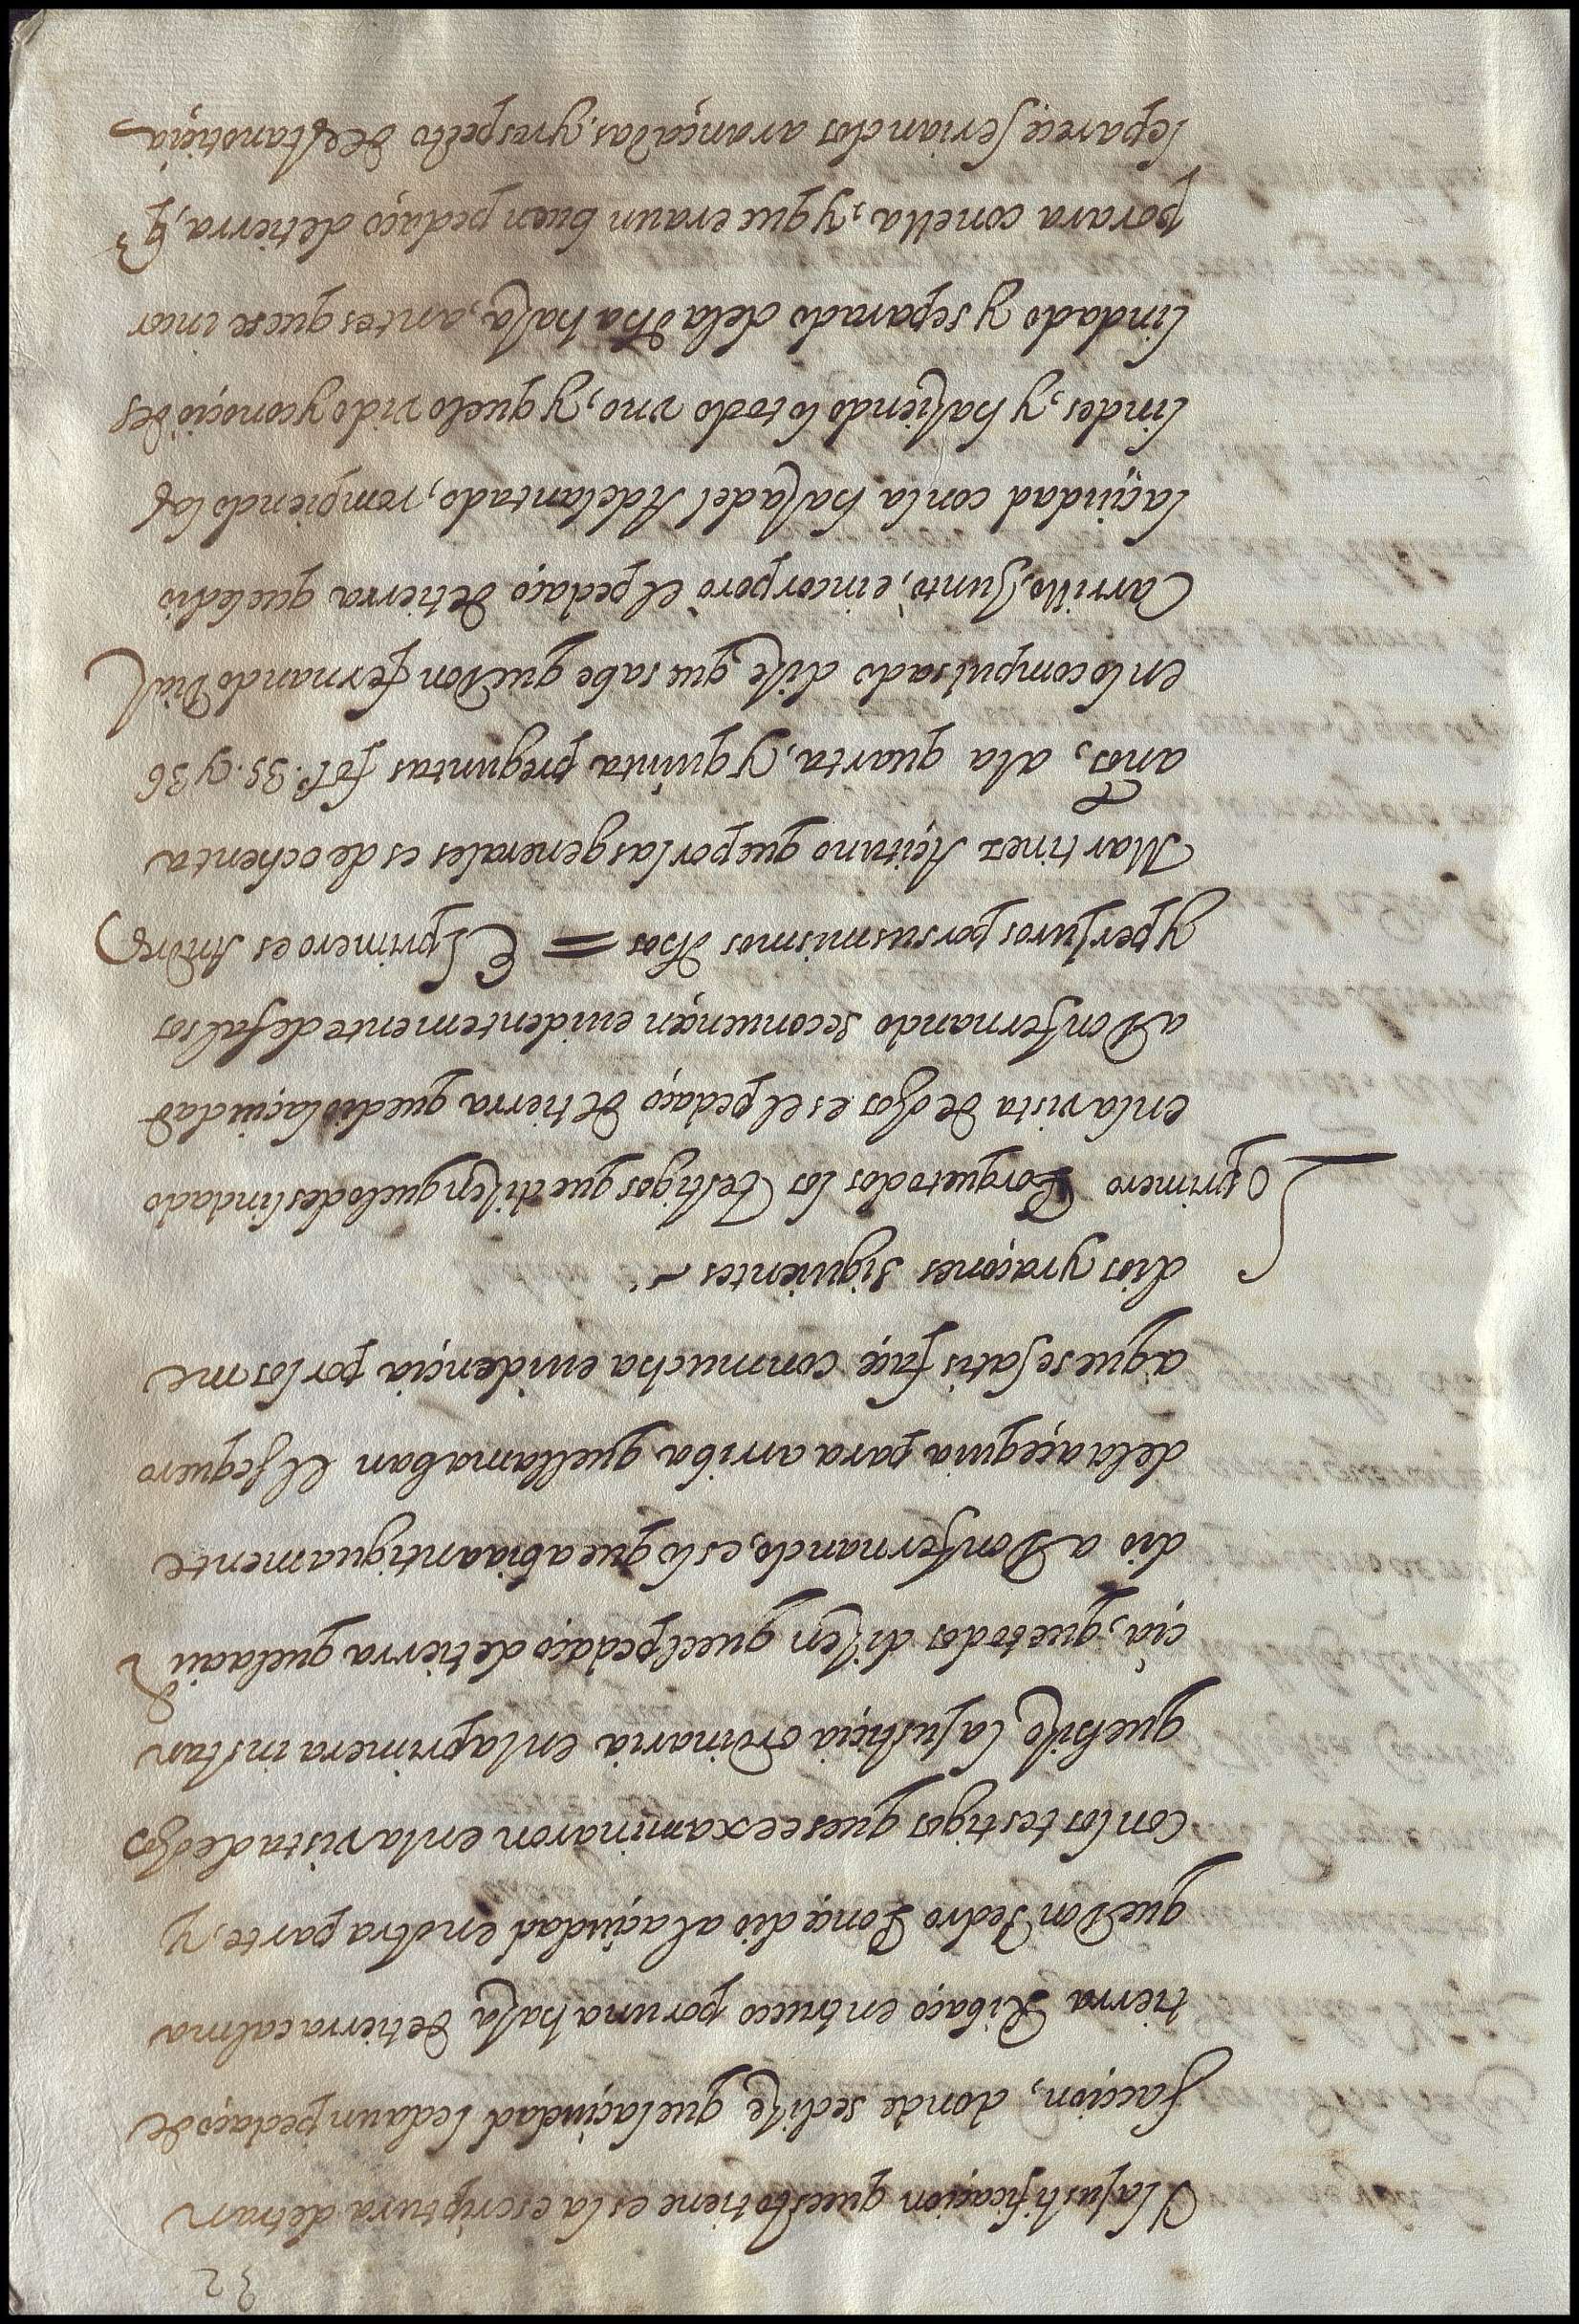 32
Y la justificaçion que esto tiene es la escriptura de tran
sacçion, donde se dize que la çiudad le da un pedaço de
tierra Ribaço en trueco por una haza de tierra calma
que Don Pedro Ponçe dio a la çiudad en otra parte, y
con los testigos que se examinaron en la vista de ojos
que hizo la justiçia ordinaria en la primera instan
çia, que todos dizen que el pedaço de tierra que la çiud
dio a Don fernando, es lo que abia antiguamente
de la açequia para arriba que llamaban el sequero
a que se satisfaçe con mucha euidençia por los me
dios y raçones siguientes
Lo primero Porque todos los testigos que dizen que lo deslindado
en la vista de ojos es el pedaço de tierra que dio la çiudad
a Don fernando se conuençen euidentemente de falsos
y perjuros por sus mismos dhos = El primero es Andres
Martinez Açituno que por las generales es de ochenta
años, a la quarta, y quinta preguntas fol. 35. y 36
en lo compulsado dize que sabe que Don fernando Diaz
Carrillo, Junto, e incorporo el pedaço de tierra que le dio
la çiudad con la haza del Adelantado, rompiendo las
lindes, y haziendolo todo vno, y que lo vido y conoçio des
lindado y separado de la dha haza, antes que se incor
porara con ella, y que era un buen pedaço de tierra, q̃
le pareçe serian dos arançadas, y respeto de esta notiçia